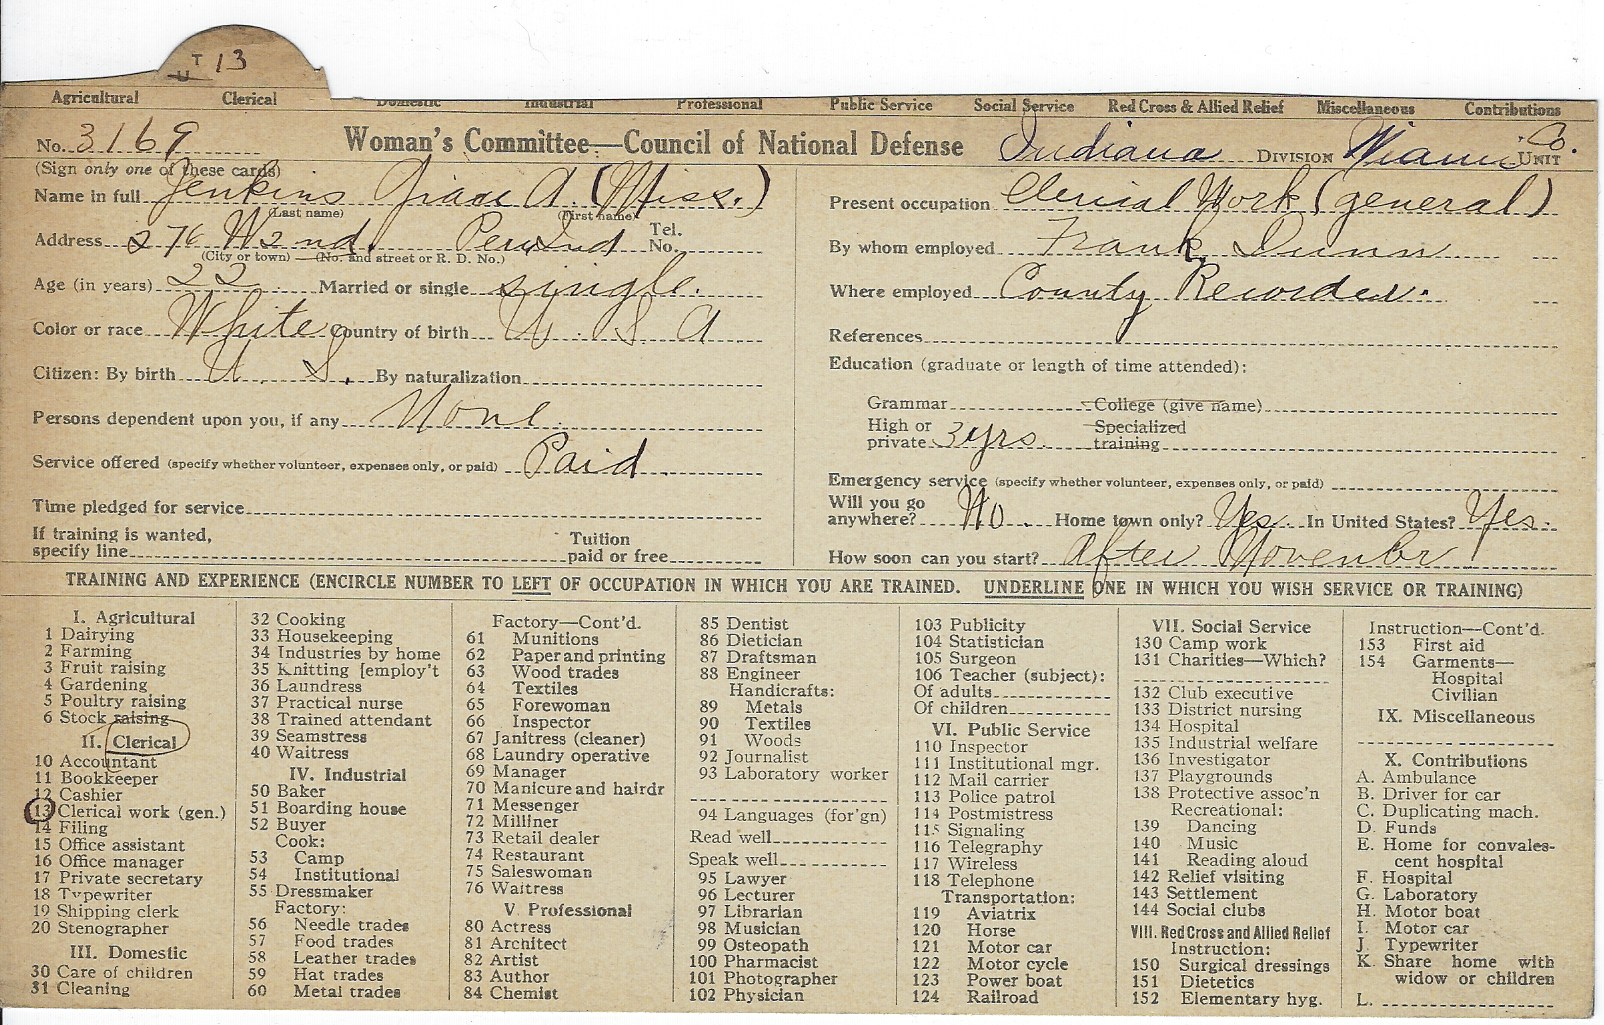 T
U 13
Agricultural Clerical Domestic Industrial Professional Public Service Social Service Red Cross & Allied Relief Miscellaneous Contributions
No. 3169 Woman's Committee—Council of National Defense Indiana DIVISION Miami Co. UNIT
(Sign only one of these cards)
Name in full Jenkins Grace A. (Miss.)
(Last name) (First name)
Address 276 W 2nd. Peru Ind Tel. No.
(City or town) (No. and street or R. D. No.)
Age (in years) 22 Married or single single.
Color or race White Country of birth U. S A
Citizen: By birth U. S. By naturalization
Persons dependent upon you, if any None
Service offered (specify whether volunteer, expenses only, or paid) Paid
Time pledged for service
If training is wanted, specify line Tuition paid or free
Present occupation Clerical Work (general)
By whom employed Frank Dunn
Where employed County Recorder.
References
Education (graduate or length of time attended):
Grammar College (give name)
High or private 3 yrs. Specialized training
Emergency service (specify whether volunteer, expenses only, or paid)
Will you go anywhere? No. Home town only? Yes. In United States? Yes.
How soon can you start? After Novenbr
TRAINING AND EXPERIENCE (ENCIRCLE NUMBER TO LEFT OF OCCUPATION IN WHICH YOU ARE TRAINED. UNDERLINE ONE IN WHICH YOU WISH SERVICE OR TRAINING)
I. Agricultural
1 Dairying
2 Farming
3 Fruit raising
4 Gardening
5 Poultry raising
6 Stock raising
II. Clerical
10 Accountant
11 Bookkeeper
12 Cashier
13 Clerical work (gen.)
14 Filing
15 Office assistant
16 Office manager
17 Private secretary
18 Typewriter
19 Shipping clerk
20 Stenographer
III. Domestic
30 Care of children
31 Cleaning
32 Cooking
33 Housekeeping
34 Industries by home
35 Knitting [employ't
36 Laundress
37 Practical nurse
38 Trained attendant
39 Seamstress
40 Waitress
IV. Industrial
50 Baker
51 Boarding house
52 Buyer
Cook:
53 Camp
54 Institutional
55 Dressmaker
Factory:
56 Needle trades
57 Food trades
58 Leather trades
59 Hat trades
60 Metal trades
Factory—Cont'd.
61 Munitions
62 Paper and printing
63 Wood trades
64 Textiles
65 Forewoman
66 Inspector
67 Janitress (cleaner)
68 Laundry operative
69 Manager
70 Manicure and hairdr
71 Messenger
72 Milliner
73 Retail dealer
74 Restaurant
75 Saleswoman
76 Waitress
V. Professional
80 Actress
81 Architect
82 Artist
83 Author
84 Chemist
85 Dentist
86 Dietician
87 Draftsman
88 Engineer
Handicrafts:
89 Metals
90 Textiles
91 Woods
92 Journalist
93 Laboratory worker
94 Languages (for'gn)
Read well
Speak well
95 Lawyer
96 Lecturer
97 Librarian
98 Musician
99 Osteopath
100 Pharmacist
101 Photographer
102 Physician
103 Publicity
104 Statistician
105 Surgeon
106 Teacher (subject):
Of adults
Of children
VI. Public Service
110 Inspector
111 Institutional mgr.
112 Mail carrier
113 Police patrol
114 Postmistress
115 Signaling
116 Telegraphy
117 Wireless
118 Telephone
Transportation:
119 Aviatrix
120 Horse
121 Motor car
122 Motor cycle
123 Power boat
124 Railroad
VII. Social Service
130 Camp work
131 Charities—Which?
132 Club executive
133 District nursing
134 Hospital
135 Industrial welfare
136 Investigator
137 Playgrounds
138 Protective assoc'n
Recreational:
139 Dancing
140 Music
141 Reading aloud
142 Relief visiting
143 Settlement
144 Social clubs
VIII. Red Cross and Allied Relief
Instruction:
150 Surgical dressings
151 Dietetics
152 Elementary hyg.
Instruction—Cont'd.
153 First aid
154 Garments—
Hospital
Civilian
IX. Miscellaneous
X. Contributions
A. Ambulance
B. Driver for car
C. Duplicating mach.
D. Funds
E. Home for convales-
cent hospital
F. Hospital
G. Laboratory
H. Motor boat
I. Motor car
J. Typewriter
K. Share home with
widow or children
L.